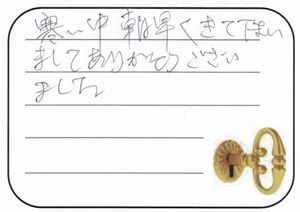 寒い中朝早くきて下さい
ましてありがとうござい
ました